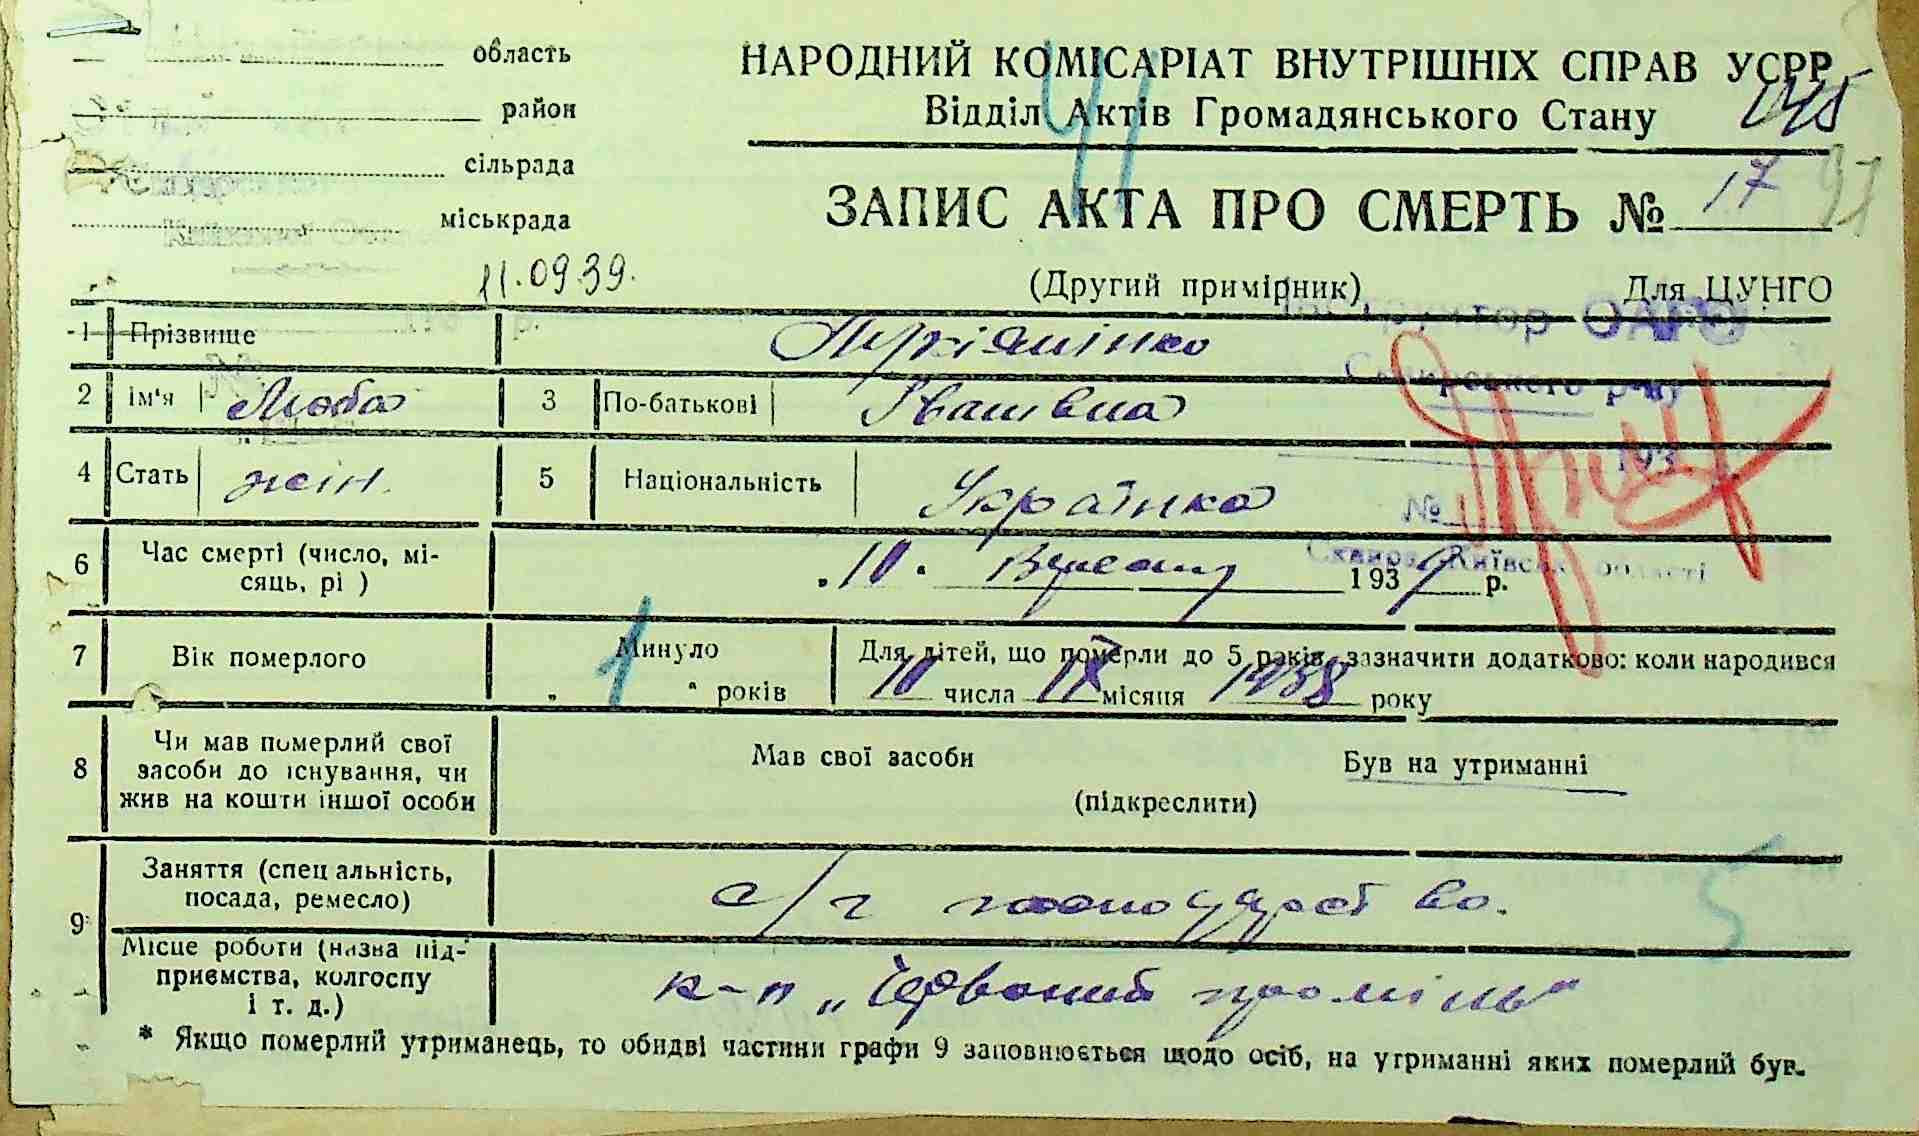 область
район
сільрада
міськрада
НАРОДНИЙ КОМІСАРІАТ ВНУТРІШНІХ СПРАВ УСРР
Відділ Актів Громадянського Стану
41
ЗАПИС АКТА ПРО СМЕРТЬ № 17
97
11.09.39.
(Другий примірник) Для ЦУНГО
Інструктор ОАГС
Сквирського р-ну
193
№
Сквира, Київської області
1 Прізвище
2 Ім'я Люба 3 По-батькові Іванівна
4 Стать жін. 5 Національність Українка
6 Час смерті (число, мі-
сяць, рі ) 10. Вересня 1939 р.
7 Вік померлого Минуло 1 років
Для дітей, що померли до 5 років, зазначити додатково: коли народився
10 числа IX місяця 1938 року
8 Чи мав померлий свої
засоби до існування, чи
жив на кошти іншої особи
Мав свої засоби Був на утриманні
(підкреслити)
9 Заняття (спеціальність,
посада, ремесло) с/г господарство.
5
Місце роботи (назва під-
приємства, колгоспу
і т. д.) к-п „Червоний промінь"
* Якщо померлий утриманець, то обидві частини графи 9 заповнюється щодо осіб, на утриманні яких померлий був.